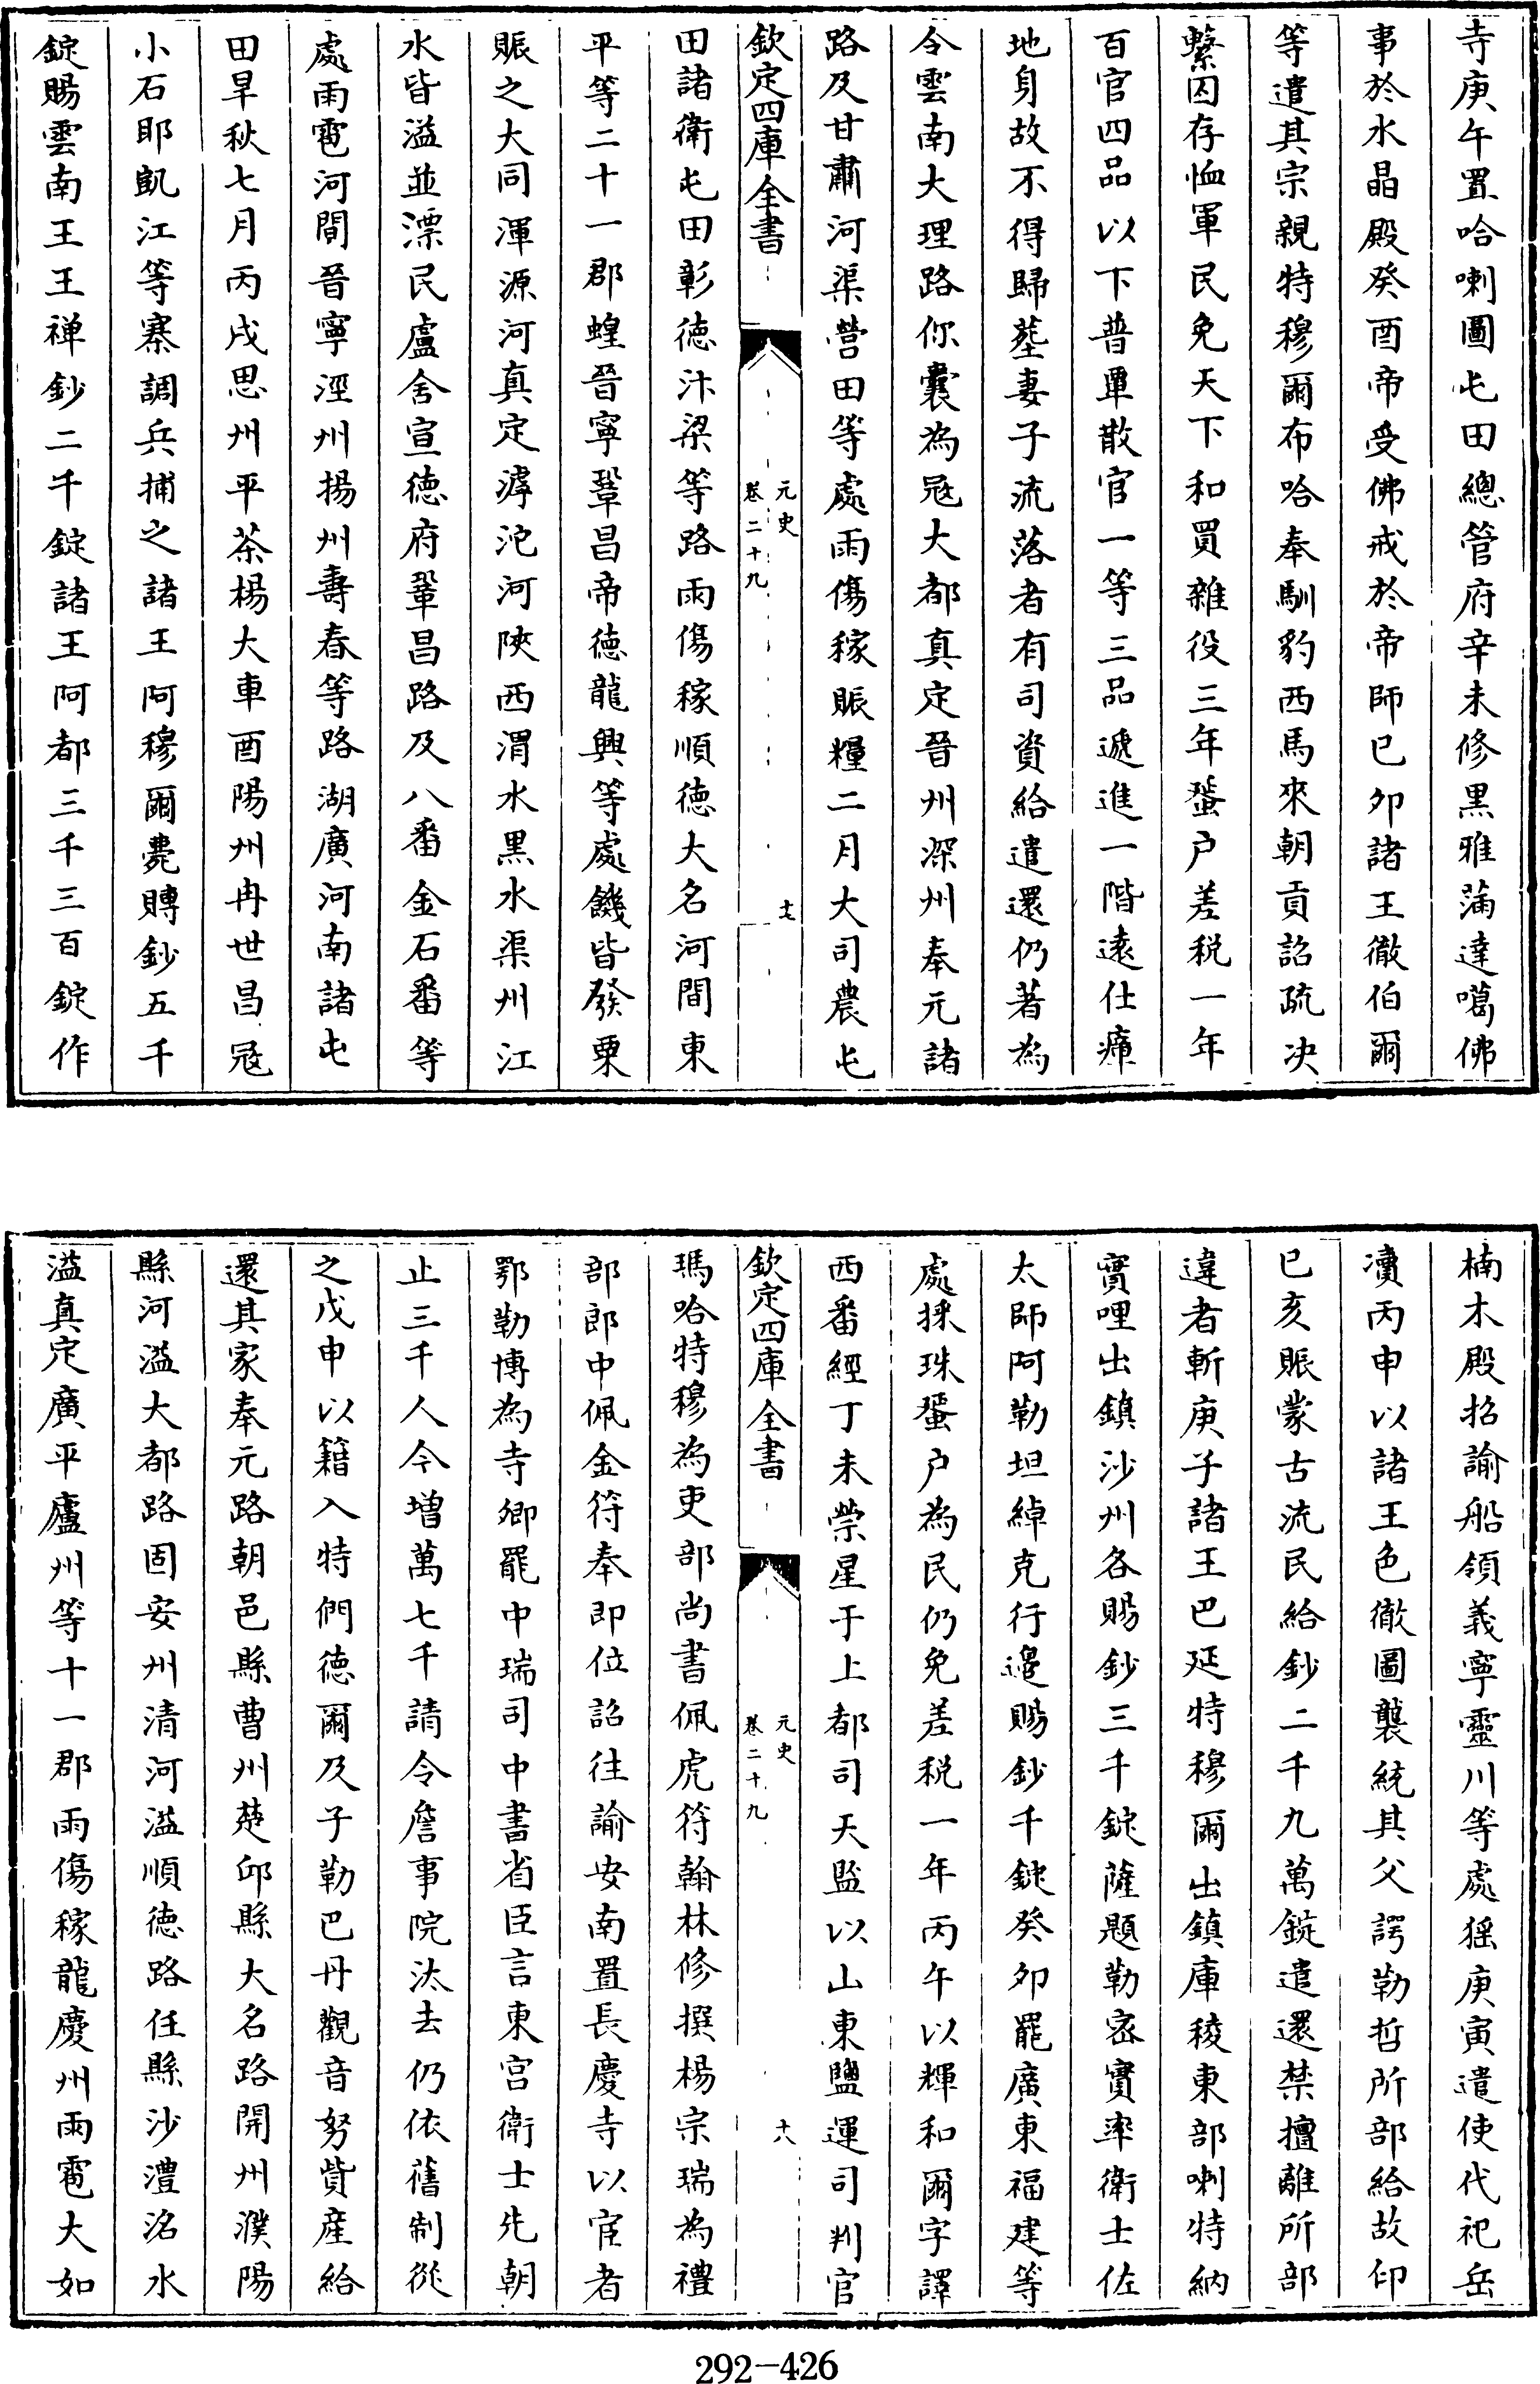 寺庚午置哈喇圖屯田總管府辛未修黑雅滿達噶佛
事於水晶殿癸酉帝受佛戒於帝師已卯諸王徹伯爾
等遣其宗親特穆爾布哈奉馴豹西馬來朝貢詔疏决
繫囚存恤軍民免天下和買雜役三年蜑户差税一年
百官四品以下普覃散官一等三品遞進一階逺仕瘴
地身故不得歸塟妻子流落者有司資給遣還仍著為
令雲南大理路你囊為冦大都真定晉州深州奉元諸
路及甘肅河渠營田等處雨傷稼賑糧二月大司農屯
欽定四庫全書
元史
卷二十九
十七
田諸衛屯田彰徳汴梁等路雨傷稼順徳大名河間東
平等二十一郡蝗晉寧鞏昌帝徳龍興等處饑皆發粟
賑之大同渾源河真定滹沱河陜西渭水黒水渠州江
水皆溢並漂民廬舍宣徳府鞏昌路及八番金石番等
處雨雹河間晉寧涇州揚州壽春等路湖廣河南諸屯
田旱秋七月丙戌思州平茶楊大車酉陽州冉世昌冦
小石耶凱江等寨調兵捕之諸王阿穆爾薨賻鈔五千
錠賜雲南王王禅鈔二千錠諸王阿都三千三百錠作
楠木殿招諭船領義寧靈川等處猺庚寅遣使代祀岳
瀆丙申以諸王色徹圖襲統其父諤勒哲所部給故印
已亥賑蒙古流民給鈔二千九萬錠遣還禁擅離所部
違者斬庚子諸王巴延特穆爾出鎮庫稜東部喇特納
實哩出鎮沙州各賜鈔三千錠薩題勒密實率衛士佐
太師阿勒坦綽克行邉賜鈔千錠癸卯罷廣東福建等
處採珠蜑户為民仍免差税一年丙午以輝和爾字譯
西番經丁未熒星于上都司天監以山東鹽運司判官
欽定四庫全書
元史
卷二十九
十八
瑪哈特穆為吏部尚書佩虎符翰林修撰楊宗瑞為禮
部郎中佩金符奉即位詔往諭安南置長慶寺以宦者
鄂勒博為寺卿罷中瑞司中書省臣言東宫衛士先朝
止三千人今増萬七千請令詹事院汰去仍依舊制從
之戊申以籍入特們徳爾及子勒巴丹觀音努貲産給
還其家奉元路朝邑縣曹州楚邱縣大名路開州濮陽
縣河溢大都路固安州清河溢順徳路任縣沙澧洺水
溢真定廣平廬州等十一郡雨傷稼龍慶州雨雹大如
292-426